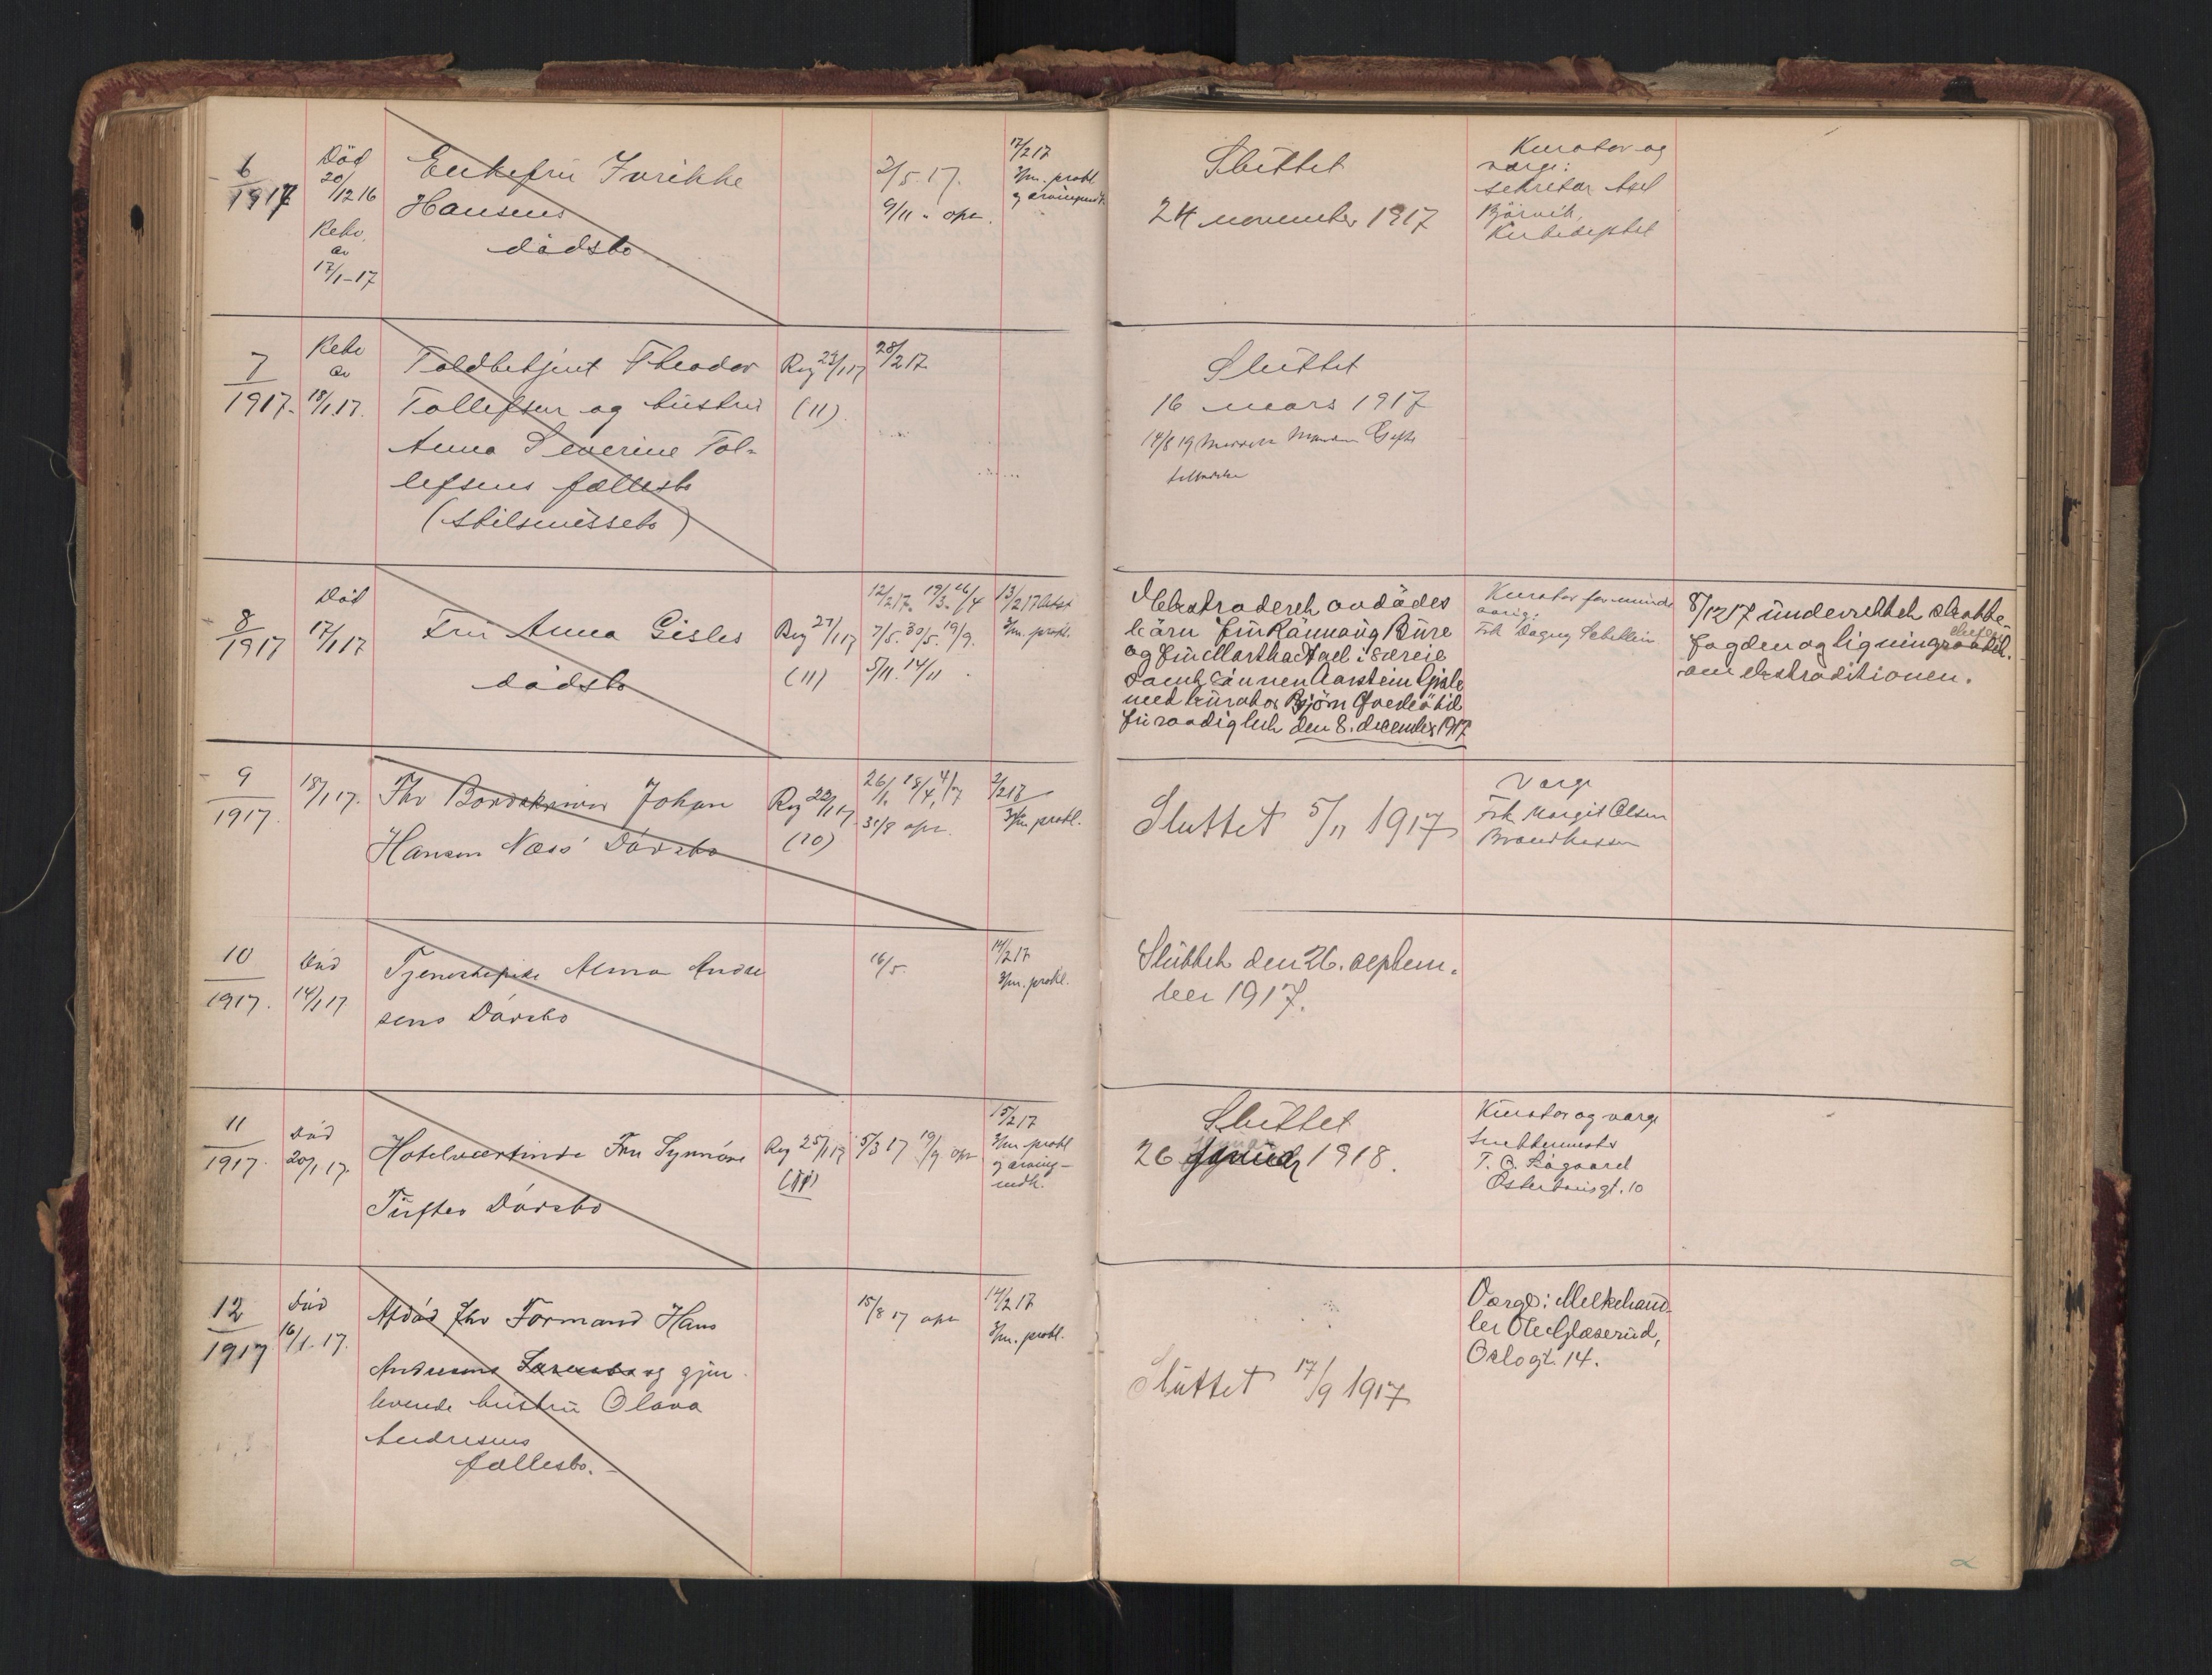 6
1917
Död
20/12 16
Enkefru Jvrikke
Hansens
dödsbo
17/1-17
2/5. 17.
9/11
17/2 17
3/m. prokl
Sluttet
24 november 1917
Kurator og
værge:
sekretær Axel
Björvik,
7
1917.
18/1 17.
Toldbetjent Theodor
Tollefsen og hustru
Anna Severine Tol-
lefsens fællesbo
(skilsmissebo)
Reg 23/1 17
(11)
28/2 17
Sluttet
16 mars 1917
14/8 19
8
1917
Död
17/1 17
Fru Anna Gisles
dödsbo
Reg 27/1 17
(11)
12/2 17. 19/3. 26/4
7/5. 30/5. 19/9.
5/11. 14/11
13/2 17
3/m. prokl.
Ekstraderet avdödes
börn fru Rannaug Bure
og fru Martha Stael i særeie
samt sönnen Aarstein Gisle
med kurator Björn Qverliö til
fri raadighet den 8. december 1917
Kurator for minde
aarig:
Frk Dagny Sebellin
8/12 17 underrettet skatte-
fogden og ligningschefen
om ekstraditionen.
9
1917.
18/1 17.
Fhv Bordskriver Johan
Hansen Næss' Dödsbo
Reg 22/1 17
(10)
26/1. 18/4, 4/7
31/8 opr.
2/2 17
3/m. prokl.
Sluttet 5/11 1917
Værge
Frk Margit Olsen
Brandkassen
10
1917.
Död
14/1 17
Tjenestepike Alma Andre
sens Dödsbo
16/5.
14/2 17
3/m. prokl.
Sluttet den 26. septem-
ber 1917.
11
1917.
Död
20/1 17.
Hotelværtinde Fru Synnöve
Tuftes Dödsbo
Reg 25/1 17
(11)
5/3 17 19/9 opr
15/2 17
3/m prokl
og arving-
indk.
Sluttet
26 januar 1918.
Kurator og værge
T. O. Rågaard
12
1917
Död
16/1. 17.
Afdöd fhv Formand Hans
Andresens og gjen
levende hustru Olava
Andresens
fællesbo.
15/8 17 opr
14/2 17
3/m. prokl.
Sluttet 17/9 1917
Værge: Melkehand-
ler Ole Glaserud,
Oslogt. 14.